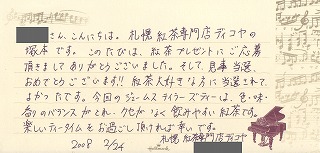 さん、こんにちは。札幌 紅茶専門店ディコヤの
塚本です。このたびは、紅茶プレゼントにご応募
頂きましてありがとうございました。そして、見事当選、
おめでとうございます!! 紅茶大好きな方に当選されて
よかったです。今回のジェームステイラーズティーは、色・味・
香りのバランスがとれ、クセがなく飲みやすい紅茶です。
楽しいティータイムをお過ごし頂ければ幸いです。
2008 2/24 札幌 紅茶専門店ディコヤ